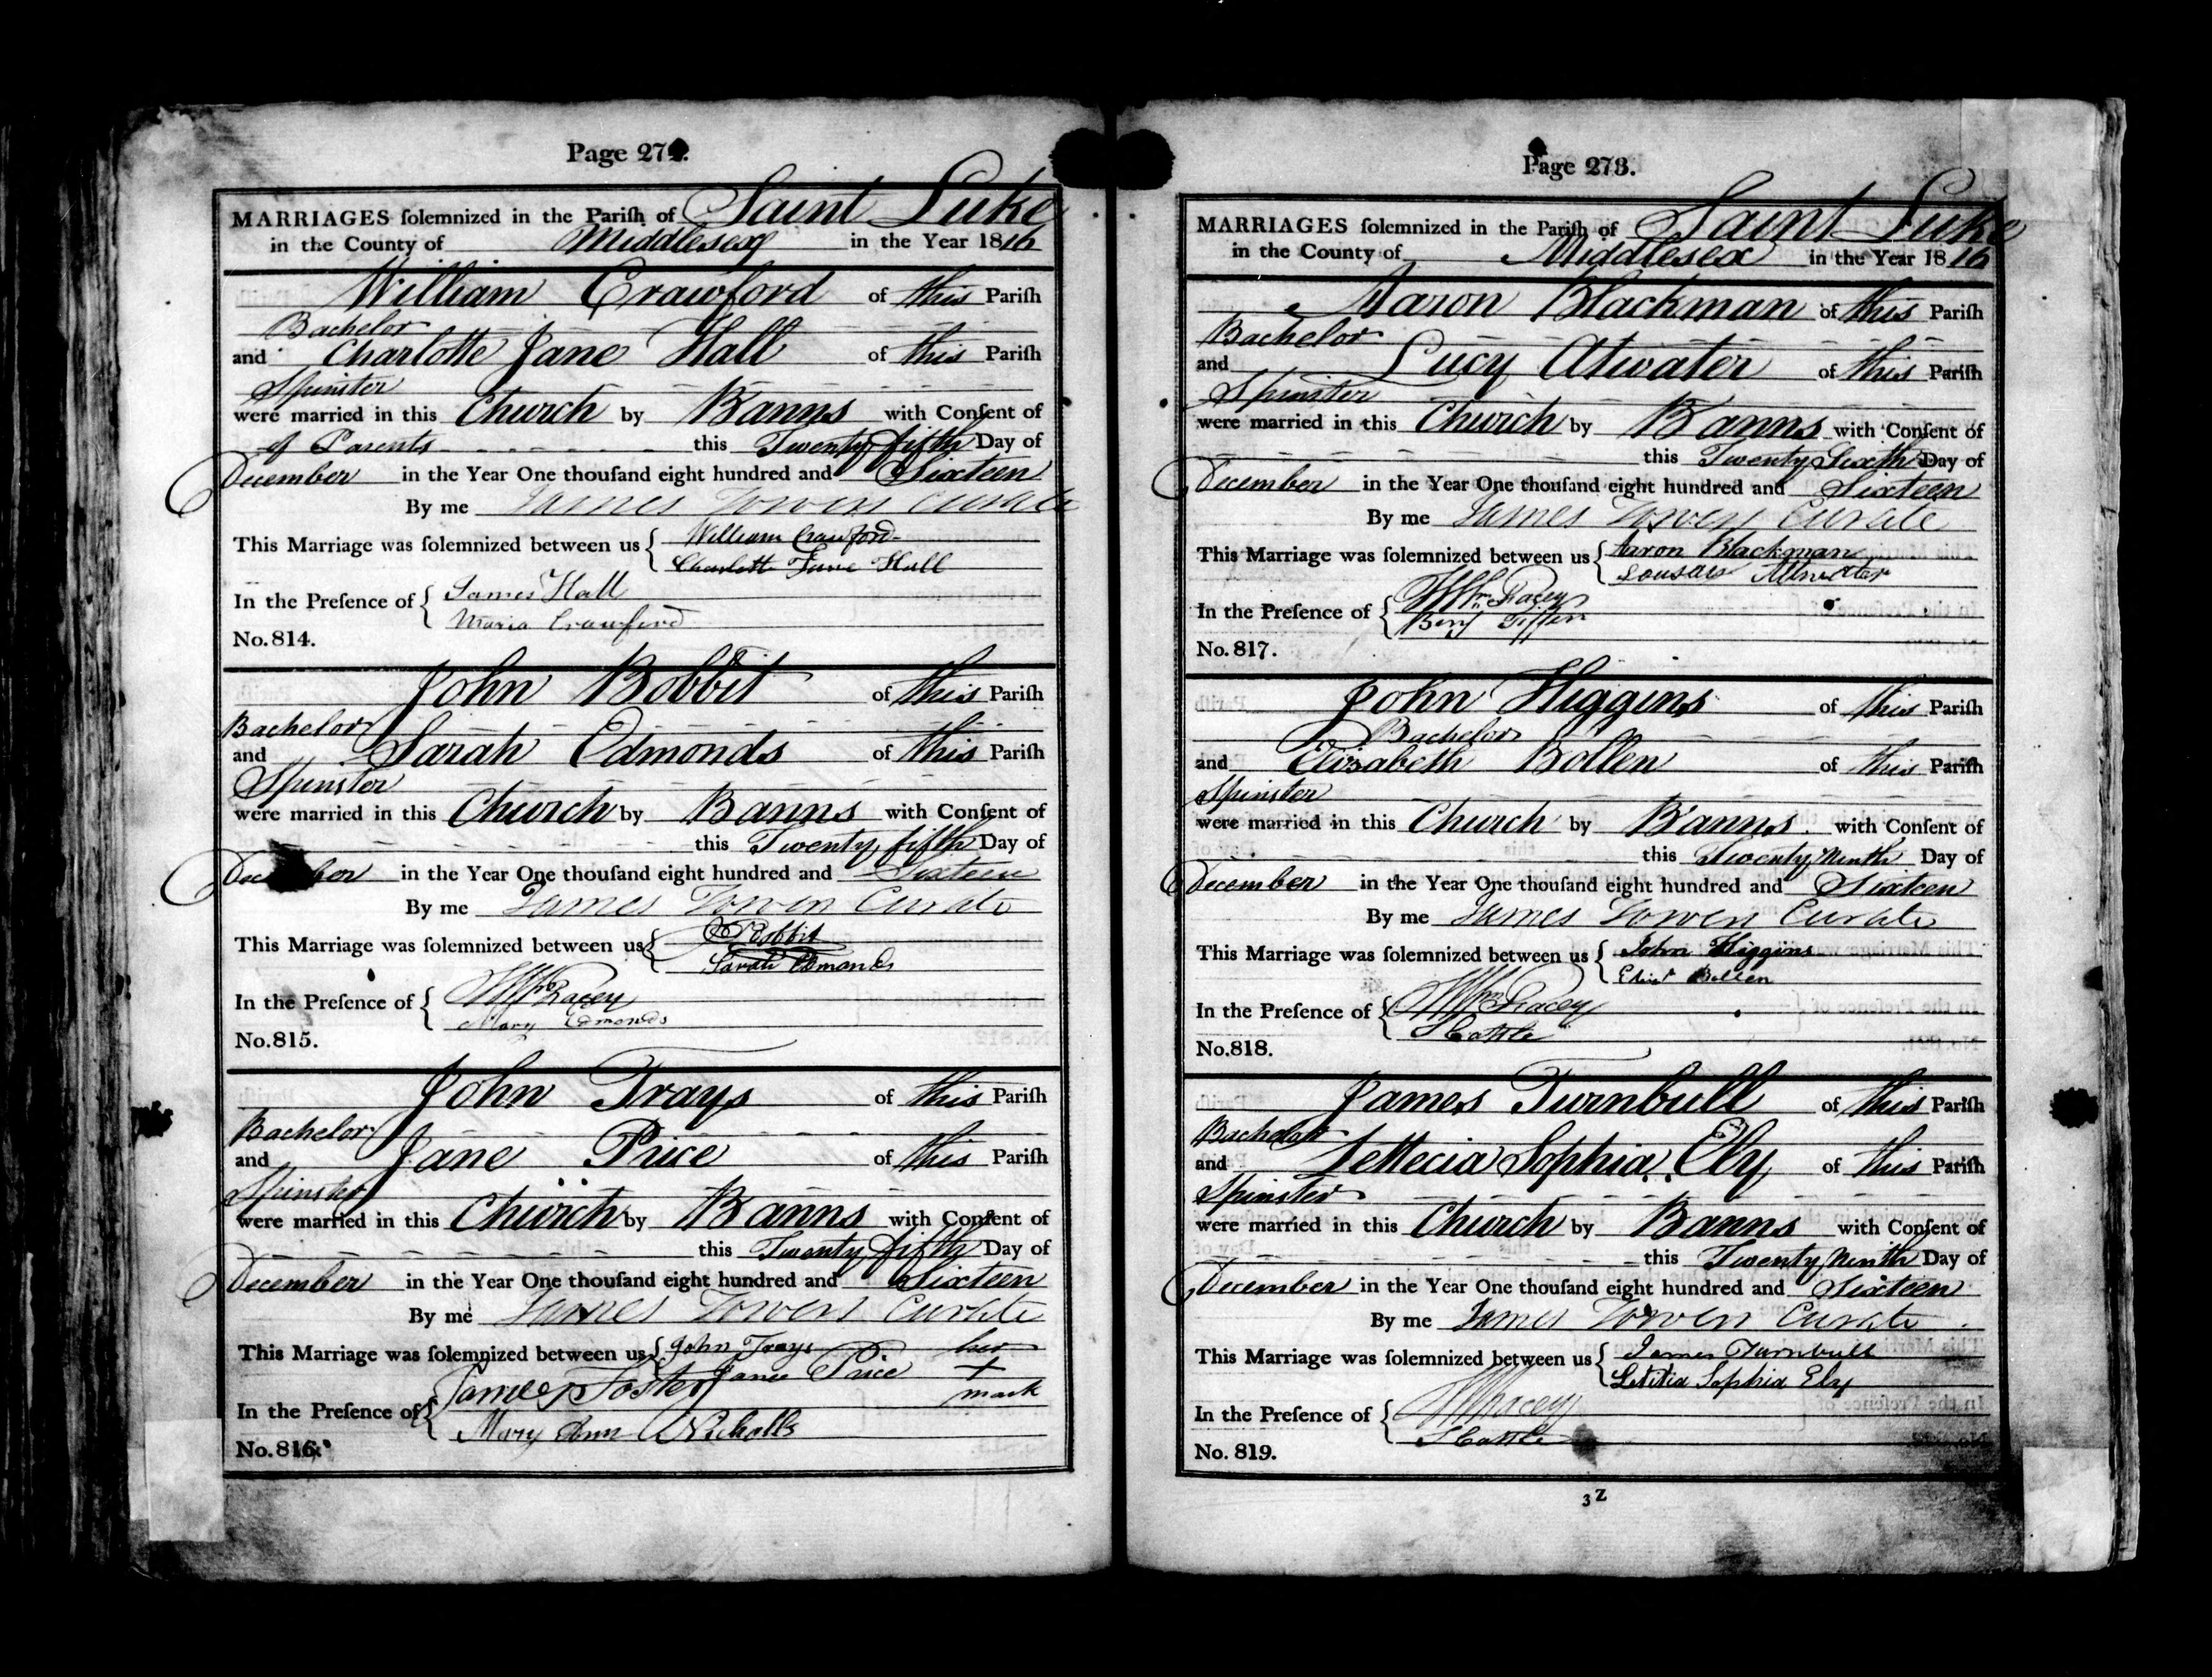 Page 272.
MARRIAGES ſolemnized in the Pariſh of Saint Luke
in the County of Middlesex in the Year 1816
William Crawford of this Pariſh
Bachelor
and Charlotte Jane Hall of this Pariſh
Spinster
were married in this Church by Banns with Conſent of
of Parents this Twenty fifth Day of
December in the Year One thouſand eight hundred and Sixteen
By me James Towen Curate
This Marriage was ſolemnized between us { William Crawford
Charlotte Jane Hall
In the Preſence of { James Hall
Maria Crawford
No. 814.
John Bobbit of this Pariſh
Bachelor
and Sarah Edmonds of this Pariſh
Spinster
were married in this Church by Banns with Conſent of
this Twenty fifth Day of
December in the Year One thouſand eight hundred and Sixteen
By me James Towen Curate
This Marriage was ſolemnized between us { J Bobbit
Sarah Edmonds
In the Preſence of { Wm Pacey
Mary Edmonds
No. 815.
John Trays of this Pariſh
Bachelor
and Jane Price of this Pariſh
Spinster
were married in this Church by Banns with Conſent of
this Twenty fifth Day of
December in the Year One thouſand eight hundred and Sixteen
By me James Towen Curate
This Marriage was ſolemnized between us { John Trays her
Jane Price +
mark
In the Preſence of { James Foster
Mary Ann Nicholls
No. 816.
Page 273.
MARRIAGES ſolemnized in the Pariſh of Saint Luke
in the County of Middlesex in the Year 1816
Aaron Blackman of this Pariſh
Bachelor
and Lucy Atwater of this Pariſh
Spinster
were married in this Church by Banns with Conſent of
this Twenty Sixth Day of
December in the Year One thouſand eight hundred and Sixteen
By me James Towen Curate
This Marriage was ſolemnized between us { Aaron Blackman
Attwater
In the Preſence of { Wm Pacey
Benj Tiffin
No. 817.
John Higgins of this Pariſh
Bachelor
and Elizabeth Bollen of this Pariſh
Spinster
were married in this Church by Banns with Conſent of
this Twenty Ninth Day of
December in the Year One thouſand eight hundred and Sixteen
By me James Towen Curate
This Marriage was ſolemnized between us { John Higgins
Elizt Bollen
In the Preſence of { Wm Pacey
S Cattle
No. 818.
James Turnbull of this Pariſh
Bachelor
and Lettecia Sophia Ely of this Pariſh
Spinster
were married in this Church by Banns with Conſent of
this Twenty Ninth Day of
December in the Year One thouſand eight hundred and Sixteen
By me James Towen Curate
This Marriage was ſolemnized between us { James Turnbull
Letitia Sophia Ely
In the Preſence of { W Pacey
S Cattle
No. 819.
3 Z